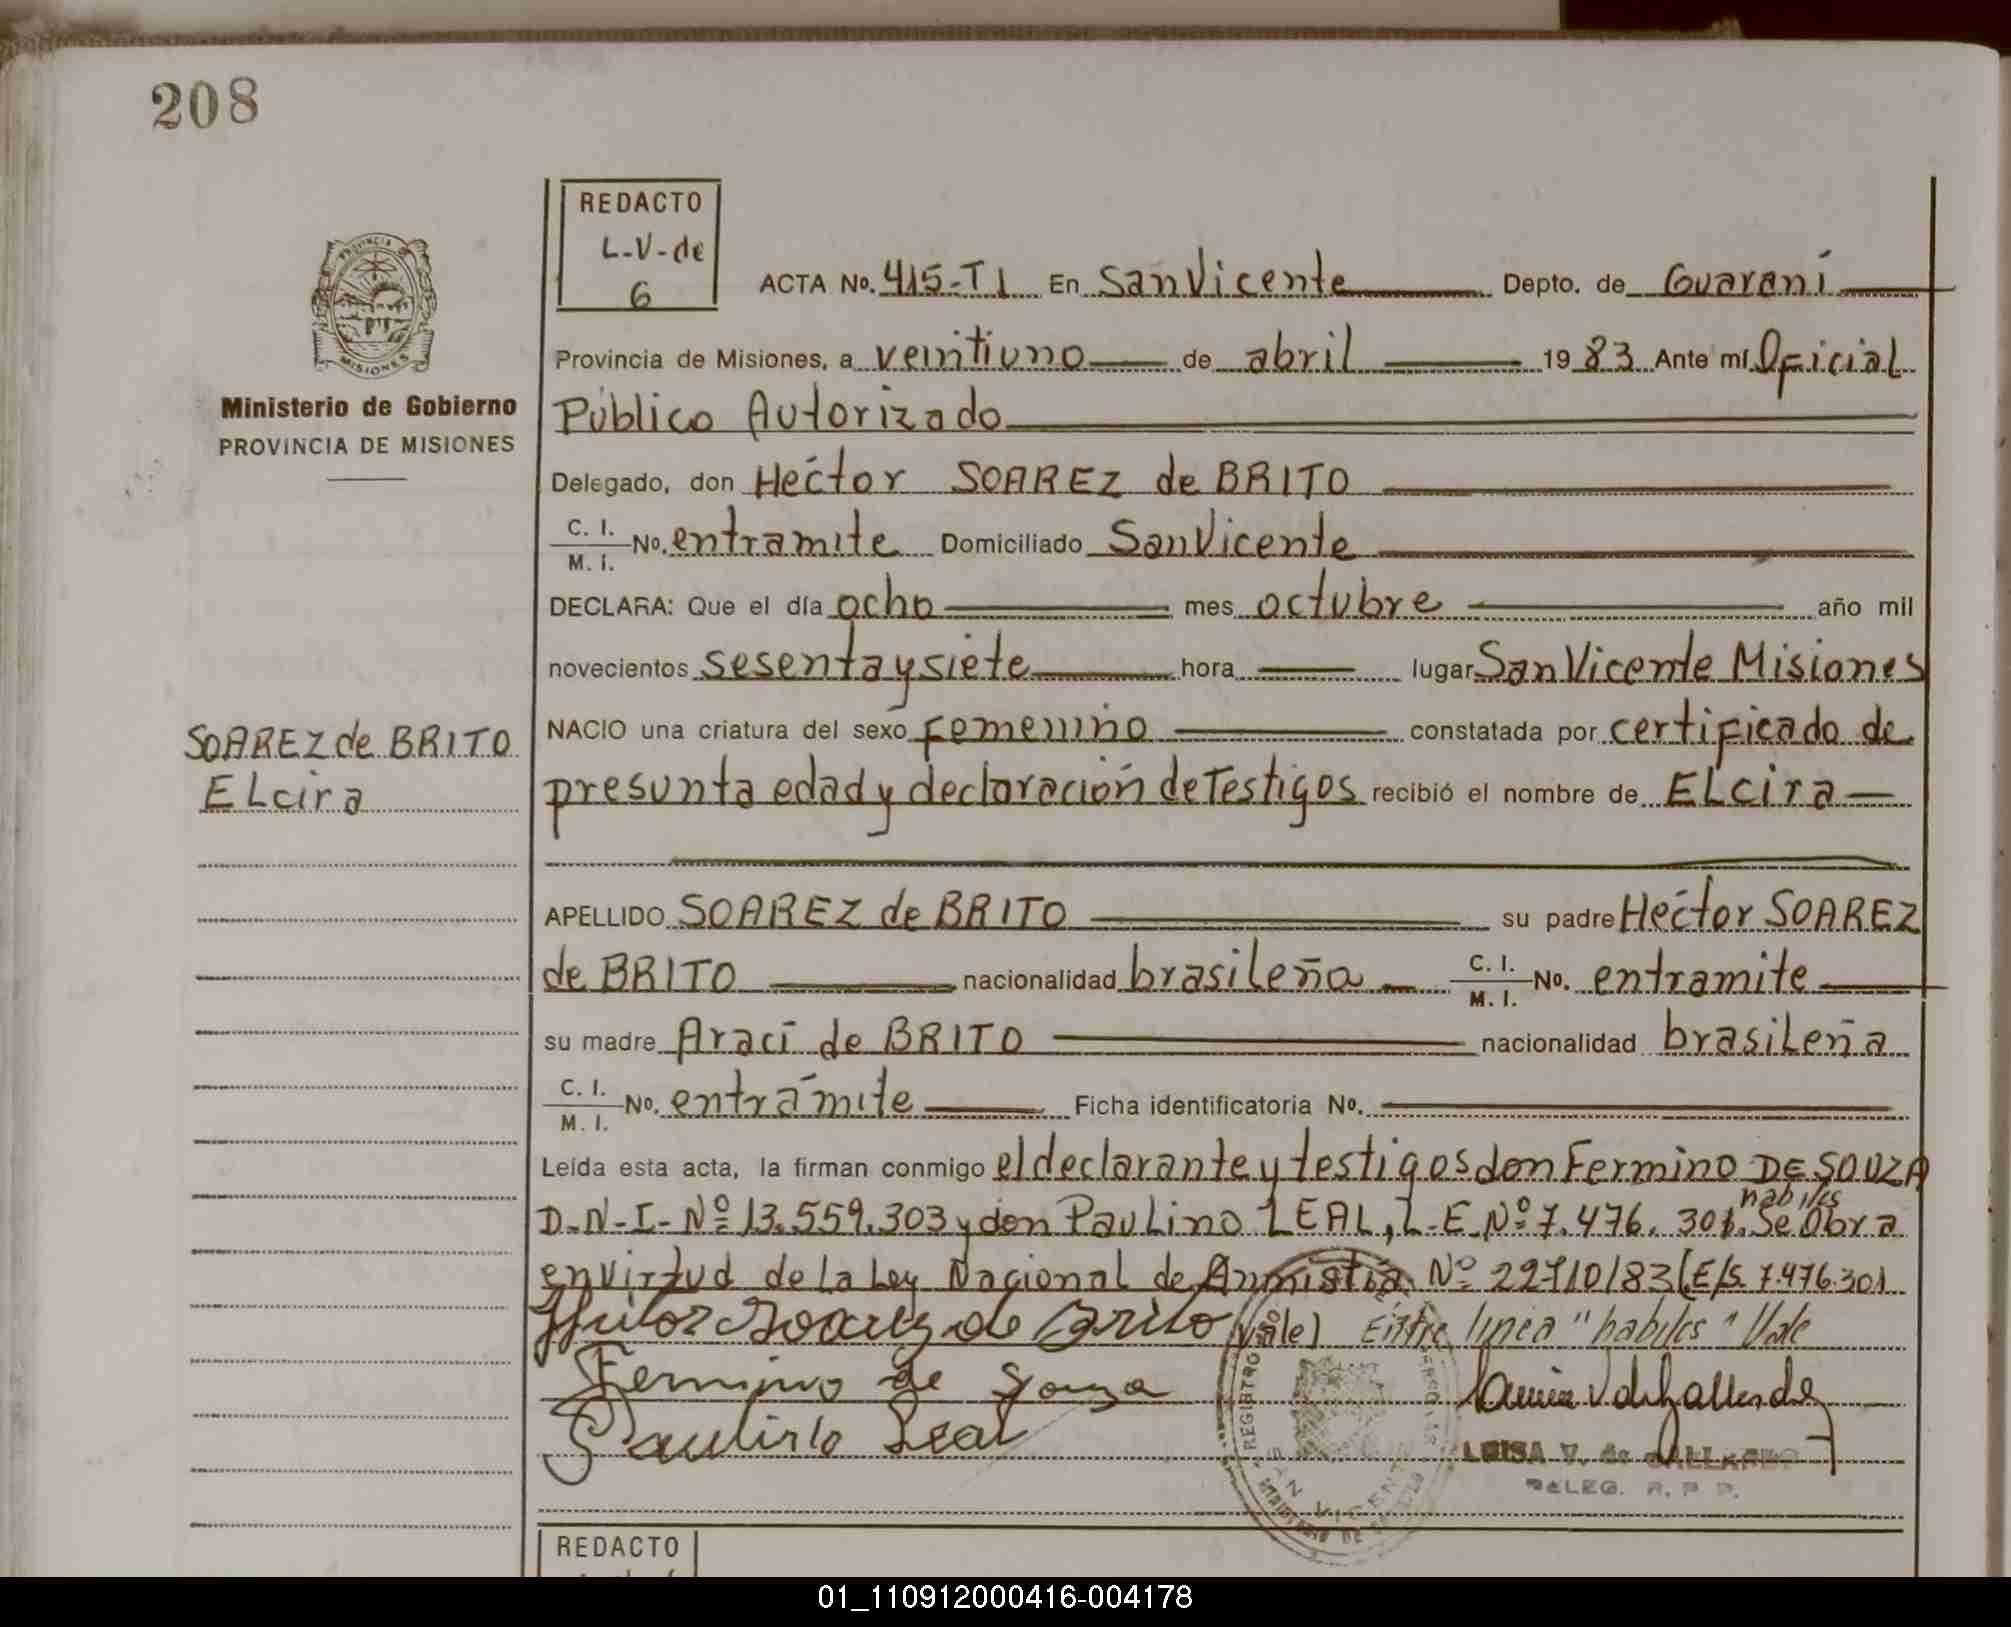 208
REDACTO
L-V-de
6
ACTA No. 415-T1 En San Vicente Depto. de Guaraní
Provincia de Misiones, a veintiuno de abril 1983 Ante mí Oficial
Público Autorizado
PROVINCIA
MISIONES
Ministerio de Gobierno
PROVINCIA DE MISIONES
Delegado, don Héctor SOAREZ de BRITO
C. I.
M. I. No. entramite Domiciliado San Vicente
DECLARA: Que el día ocho mes octubre año mil
novecientos sesenta y siete hora lugar San Vicente Misiones
NACIO una criatura del sexo femenino constatada por certificado de
presunta edad y declaración de Testigos recibió el nombre de ELcira
SOAREZ de BRITO
ELcira
APELLIDO SOAREZ de BRITO su padre Héctor SOAREZ
de BRITO nacionalidad brasileña C. I.
M. I. No. entramite
su madre Araci de BRITO nacionalidad brasileña
C. I.
M. I. No. entrámite Ficha identificatoria No.
Leída esta acta, la firman conmigo el declarante y testigos don Fermino DE SOUZA
D-N-I- Nº 13.559.303 y don Paulino LEAL, L.E. Nº 7.476.301. habiles Se Obra
en virtud de la Ley Nacional de Anmistia Nº 22710/83 (E/S. 7.476.301
Soarez de Brito Vale) Entre linea "habiles" Vale
Fermino de Souza
Paulino Leal
REGISTRO
SAN VICENTE
LUISA V. de GALLARDO
DELEG. R. P. P.
REDACTO
01_110912000416-004178